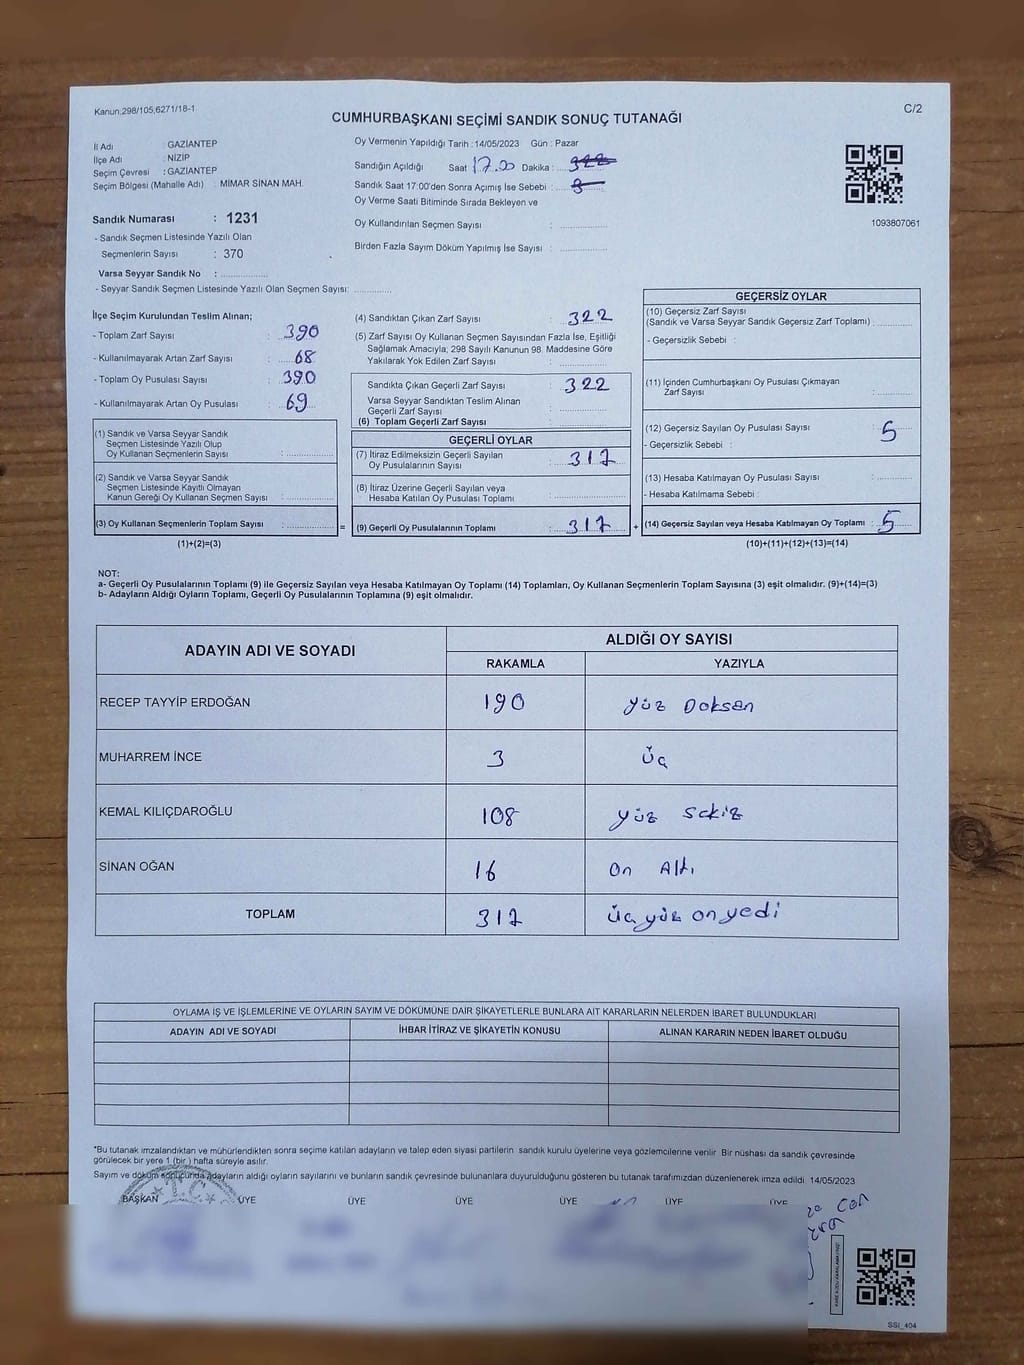 Kanun:298/105,6271/18-1
C/2
CUMHURBAŞKANI SEÇİMİ SANDIK SONUÇ TUTANAĞI
İl Adı : GAZİANTEP
İlçe Adı : NİZİP
Seçim Çevresi : GAZİANTEP
Seçim Bölgesi (Mahalle Adı) : MİMAR SİNAN MAH.
Oy Vermenin Yapıldığı Tarih : 14/05/2023 Gün : Pazar
Sandığın Açıldığı Saat 17.00 Dakika :
Sandık Saat 17:00'den Sonra Açımış İse Sebebi :
Oy Verme Saati Bitiminde Sırada Bekleyen ve
Oy Kullandırılan Seçmen Sayısı :
Birden Fazla Sayım Döküm Yapılmış İse Sayısı :
1093807061
Sandık Numarası : 1231
- Sandık Seçmen Listesinde Yazılı Olan
Seçmenlerin Sayısı : 370
Varsa Seyyar Sandık No :
- Seyyar Sandık Seçmen Listesinde Yazılı Olan Seçmen Sayısı:
İlçe Seçim Kurulundan Teslim Alınan;
- Toplam Zarf Sayısı : 390
- Kullanılmayarak Artan Zarf Sayısı : 68
- Toplam Oy Pusulası Sayısı : 390
- Kullanılmayarak Artan Oy Pusulası : 69
(1) Sandık ve Varsa Seyyar Sandık
Seçmen Listesinde Yazılı Olup
Oy Kullanan Seçmenlerin Sayısı :
(2) Sandık ve Varsa Seyyar Sandık
Seçmen Listesinde Kayıtlı Olmayan
Kanun Gereği Oy Kullanan Seçmen Sayısı :
(3) Oy Kullanan Seçmenlerin Toplam Sayısı : =
(1)+(2)=(3)
(4) Sandıktan Çıkan Zarf Sayısı : 322
(5) Zarf Sayısı Oy Kullanan Seçmen Sayısından Fazla İse, Eşitliği
Sağlamak Amacıyla; 298 Sayılı Kanunun 98. Maddesine Göre
Yakılarak Yok Edilen Zarf Sayısı :
Sandıkta Çıkan Geçerli Zarf Sayısı : 322
Varsa Seyyar Sandıktan Teslim Alınan
Geçerli Zarf Sayısı :
(6) Toplam Geçerli Zarf Sayısı :
GEÇERLİ OYLAR
(7) İtiraz Edilmeksizin Geçerli Sayılan
Oy Pusulalarının Sayısı : 317
(8) İtiraz Üzerine Geçerli Sayılan veya
Hesaba Katılan Oy Pusulası Toplamı :
(9) Geçerli Oy Pusulalarının Toplamı : 317 +
GEÇERSİZ OYLAR
(10) Geçersiz Zarf Sayısı
(Sandık ve Varsa Seyyar Sandık Geçersiz Zarf Toplamı) :
- Geçersizlik Sebebi :
(11) İçinden Cumhurbaşkanı Oy Pusulası Çıkmayan
Zarf Sayısı :
(12) Geçersiz Sayılan Oy Pusulası Sayısı : 5
- Geçersizlik Sebebi :
(13) Hesaba Katılmayan Oy Pusulası Sayısı :
- Hesaba Katılmama Sebebi :
(14) Geçersiz Sayılan veya Hesaba Katılmayan Oy Toplamı : 5
(10)+(11)+(12)+(13)=(14)
NOT:
a- Geçerli Oy Pusulalarının Toplamı (9) ile Geçersiz Sayılan veya Hesaba Katılmayan Oy Toplamı (14) Toplamları, Oy Kullanan Seçmenlerin Toplam Sayısına (3) eşit olmalıdır. (9)+(14)=(3)
b- Adayların Aldığı Oyların Toplamı, Geçerli Oy Pusulalarının Toplamına (9) eşit olmalıdır.
ADAYIN ADI VE SOYADI ALDIĞI OY SAYISI
RAKAMLA YAZIYLA
RECEP TAYYİP ERDOĞAN 190 yüz Doksan
MUHARREM İNCE 3 üç
KEMAL KILIÇDAROĞLU 108 yüz sekiz
SİNAN OĞAN 16 on Altı
TOPLAM 317 üç yüz on yedi
OYLAMA İŞ VE İŞLEMLERİNE VE OYLARIN SAYIM VE DÖKÜMÜNE DAİR ŞİKAYETLERLE BUNLARA AİT KARARLARIN NELERDEN İBARET BULUNDUKLARI
ADAYIN ADI VE SOYADI İHBAR İTİRAZ VE ŞİKAYETİN KONUSU ALINAN KARARIN NEDEN İBARET OLDUĞU
*Bu tutanak imzalandıktan ve mühürlendikten sonra seçime katılan adayların ve talep eden siyasi partilerin sandık kurulu üyelerine veya gözlemcilerine verilir Bir nüshası da sandık çevresinde
görülecek bir yere 1 (bir ) hafta süreyle asılır.
Sayım ve döküm sonucunda adayların aldığı oyların sayılarını ve bunların sandık çevresinde bulunanlara duyurulduğunu gösteren bu tutanak tarafımızdan düzenlenerek imza edildi 14/05/2023
T.C.
BAŞKAN ÜYE ÜYE ÜYE ÜYE ÜYE ÜYE
SSİ_404